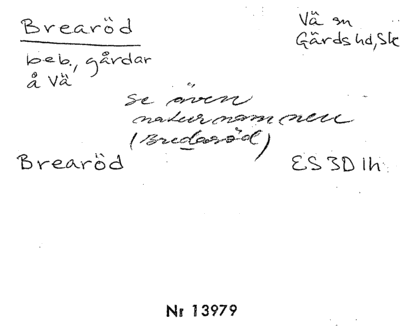 Brearöd
Vä sn
Gärds hd, Sk
beb., gårdar
å Vä
se även
naturnamnen
(Bredaröd)
Brearöd
ES 3D 1h
Nr 13979